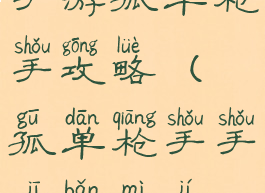 手游孤单枪
shǒu gōng lüè
手攻略（
gū dān qiāng shǒu shǒu
孤单枪手手
jī bǎn mì jí